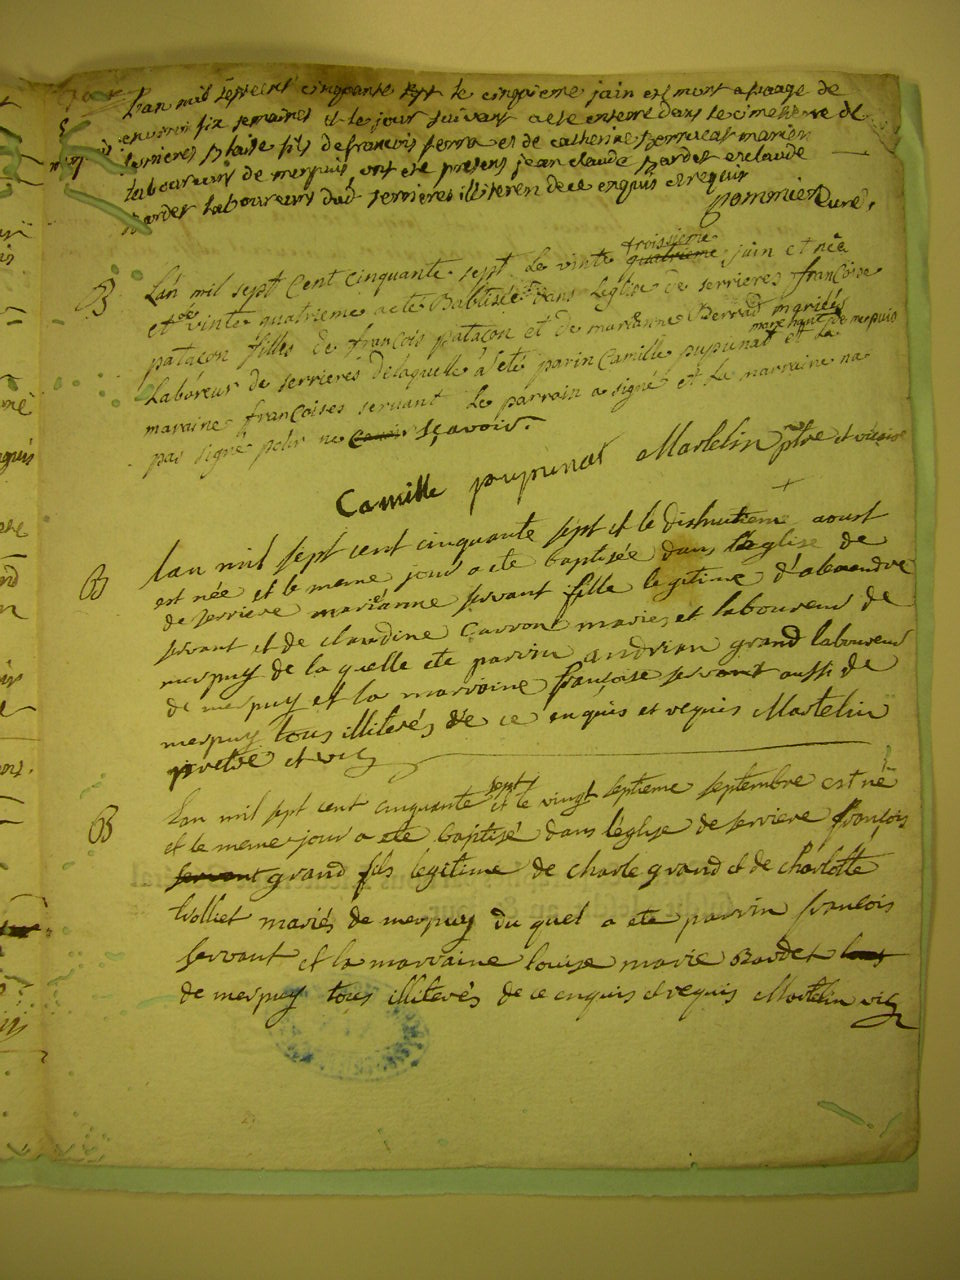 Lan mil septcent cinquante sept le cinquieme juin est mort a laage de
environ six semaines et le jour suivant a ete enterré dans le cimetierre de
serrieres blaise fils de francois serra et de catherine perrucat mariés
laboureurs de merpuis ont eté presens jean claude bardet et claude
bardet laboureurs dud serrieres illiteren de ce enquis et requis
pommier Curé.
B
Lan mil sept Cent Cinquante sept Le vinte quatrieme troissieme juin et née
et le vinte quatrieme a ete Babtisée dans Leglise de serrieres françoise
pataçon filles de françois pataçon et de marianne Berrad mariées
Laboreur de serrieres delaquelle a été parin Camille pupunat marchant de merpuis et La
maraine françoises servant Le parrain a signé et La marraine na
pas signé pour ne sçavoir.
Camille pupunat Martelin ptre et vicaire
B
lan mil sept cent cinquante sept et le dishuitieme aoust
est née et le meme jour a ete baptisée dans leglise de
de serriere marianne servant fille legitime d'alexandre
servant et de claudine Carron mariés et laboureur de
merpuy de la quelle ete parrin andrian grand laboureur
de merpuy et la marraine françoise servant aussi de
merpuy tous illiterés de ce enquis et requis Martelin
pretre et vic
B
Lan mil sept cent cinquante sept et le vingt septieme septembre est né
et le meme jour a ete baptisé dans leglise de serriere françois
servant grand fils legitime de charle grand et de charlotte
trolliet mariés de merpuy du quel a ete parrin francois
servant et la marraine louise marie Bardet
de merpuy tous illiterés de ce enquis et requis Martelin vic